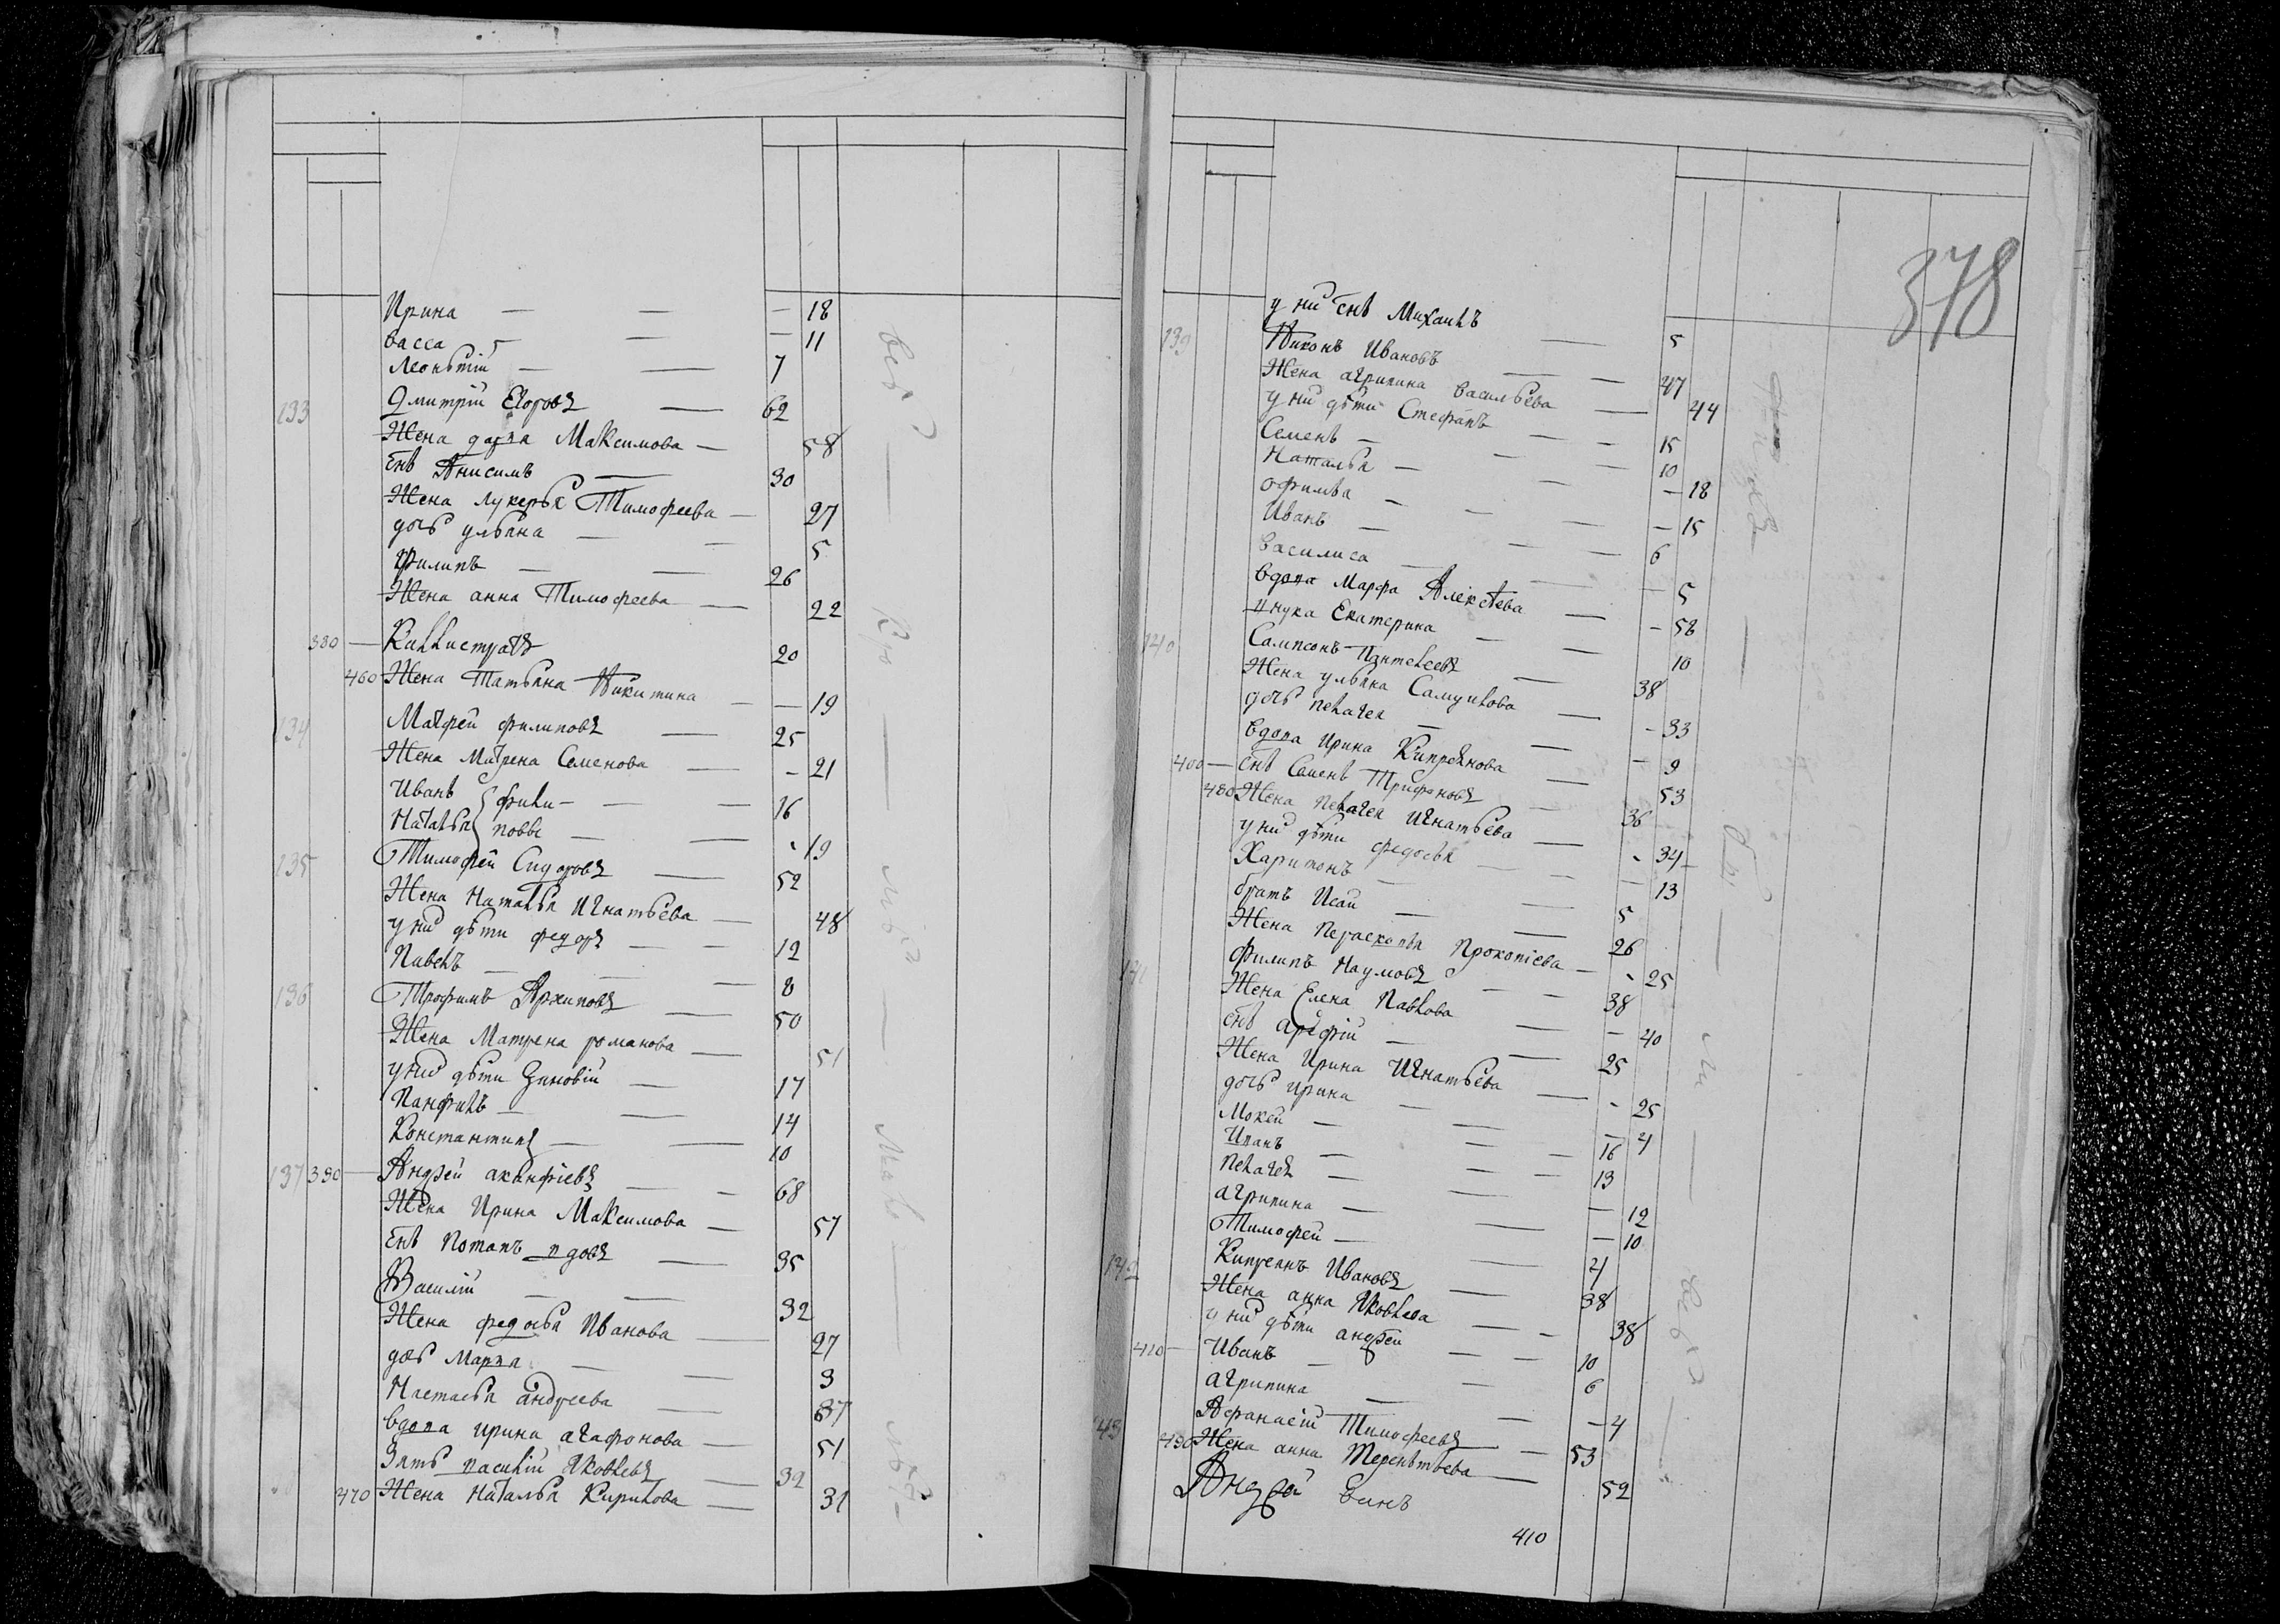 Ирина — — — 18
васса — — — 11
Леонътiи — — 7
133 Дмитрiи Егоровъ — 62
Жена дарья Максимова — 58
Снъ Анисимъ — 30
Жена лукерья Тимофеева — 27
дочь ульяна — — 5
Филипъ — — 26
Жена анна Тимофеева — 22
380 — Каллистратъ 20
460 Жена Татьяна Никитина — — 19
134 Матфеи филиповъ — 25
Жена Матрена Семенова — - 21
Иванъ } фили- — — 16
Наталья } повы — — - 19
135 Тимофеи Сидоровъ — 52
Жена Наталья Игнатьева — 48
у них дѣти федоръ — — 12
Павелъ — — — 8
136 Трофимъ Архиповъ — 50
Жена Матрена романова — 51
у них дѣти Зиновiи — 17
Панфилъ — — 14
Константинъ — — 10
137 390 — Андреи акинфiевъ — — 68
Жена Ирина Максимова — 57
Снъ Потапъ вдовъ — 35
Василiи — — 32
Жена федосья Иванова — 27
дочь Марья — — 3
Настасья андреева — 37
вдова ирина агафонова — 51
Зять василiи Яковлевъ — 32
470 Жена Наталья Кирилова — 31
378
у них снъ Михаилъ — 5
139 Никонъ Ивановъ — — 47
Жена агрипина васильева — 44
у них дѣти Стефанъ — — 15
Семенъ — — — 10
Наталья — — — 18
офимья — — — 15
Иванъ — — — 6
василиса — — — 5
вдова Марфа Алексѣева — - 58
внука Екатерина — — 10
140 Сампсонъ Пантелеевъ — 38
Жена ульяна Самуилова — - 33
дочь пелагея — — — 9
вдова ирина Кипреянова — 53
400 — Снъ Семенъ Трифоновъ — 36
480 Жена пелагея Игнатьева — - 34
у них дѣти федосья — — — 13
Харитонъ — — 5
братъ Исаи — — 26
Жена Парасковья Прокопiева — - 25
141 Филипъ Наумовъ — — 38
Жена Елена Павлова — — 40
Снъ арефiи — — 25
Жена Ирина Игнатьева — - 25
дочь ирина — — — 4
Мокеи — — — 16
Иванъ — — — 13
пелагея — — 12
агрипина — — — 10
Тимофеи — — 4
142 Кипреянъ Ивановъ — 38
Жена анна Яковлева — - 38
у них дѣти андреи — — 10
410 — Иванъ — — 6
агрипина — — — 4
143 Афанасiи Тимофеевъ — 53
490 Жена анна Терентьева — 52
410